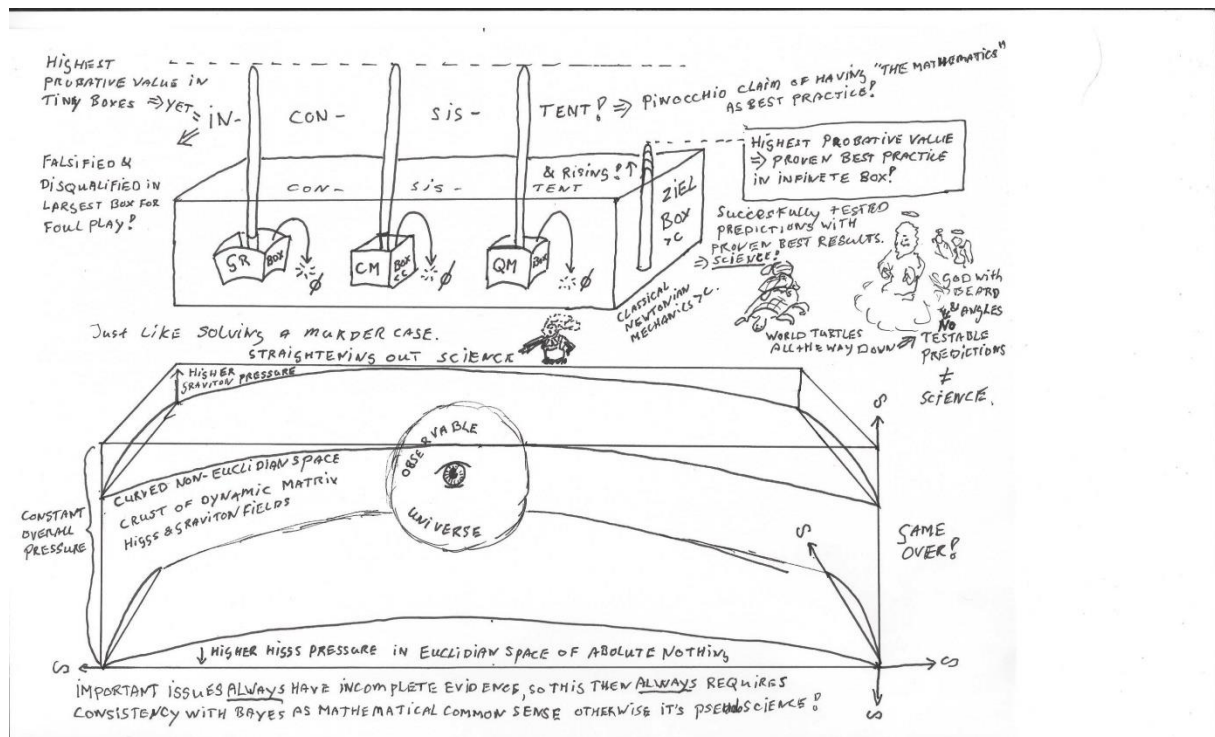 HIGHEST
PROBATIVE VALUE IN
TINY BOXES ⇒ YET ⇒ IN- CON- SIS- TENT! ⇒ PINOCCHIO CLAIM OF HAVING "THE MATHEMATICS"
AS BEST PRACTICE!
FALSIFIED &
DISQUALIFIED IN
LARGEST BOX FOR
FOUL PLAY!
CON- SIS- TENT
& RISING! ↑
HIGHEST PROBATIVE VALUE
⇒ PROVEN BEST PRACTICE
IN INFINETE BOX!
GR BOX
CM BOX <C
QM BOX
ø
ø
ø
ZIEL
BOX
>C
CLASSICAL
NEWTONIAN
MECHANICS >C.
SUCCESFULLY TESTED
PREDICTIONS WITH
PROVEN BEST RESULTS.
⇒ SCIENCE!
WORLD TURTLES
ALL THE WAY DOWN ⇒
GOD WITH
BEARD
& ANGLES
NO
TESTABLE
PREDICTIONS
≠
SCIENCE.
JUST LIKE SOLVING A MURDER CASE.
STRAIGHTENING OUT SCIENCE
↑ HIGHER
GRAVITON PRESSURE
OBSERVABLE
UNIVERSE
CURVED NON-EUCLIDIAN SPACE
CRUST OF DYNAMIC MATRIX
HIGGS & GRAVITON FIELDS
CONSTANT
OVERALL
PRESSURE
SAME
OVER!
↓ HIGHER HIGGS PRESSURE IN EUCLIDIAN SPACE OF ABOLUTE NOTHING
IMPORTANT ISSUES ALWAYS HAVE INCOMPLETE EVIDENCE, SO THIS THEN ALWAYS REQUIRES
CONSISTENCY WITH BAYES AS MATHEMATICAL COMMON SENSE OTHERWISE IT'S PSEUDOSCIENCE!